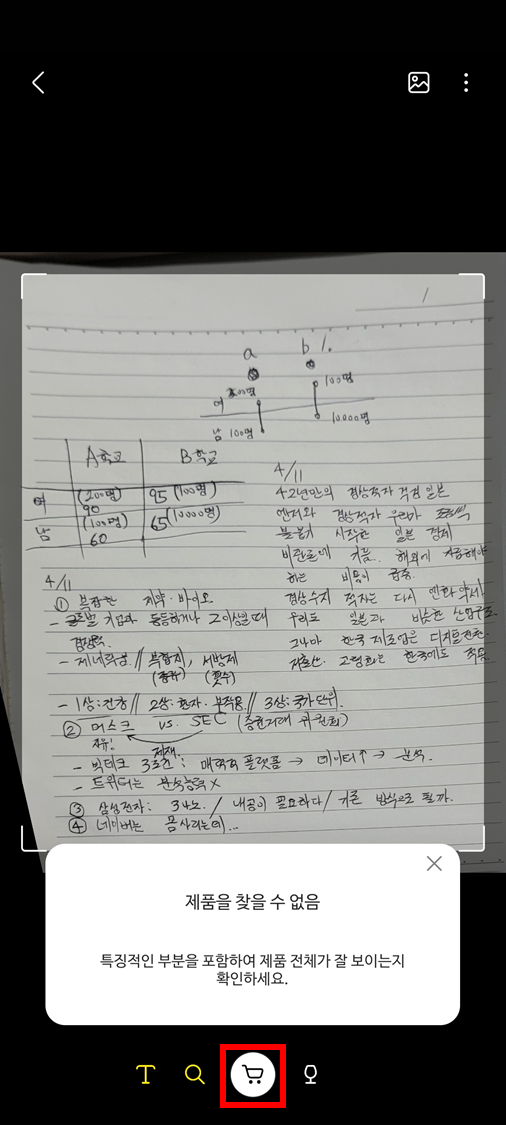 a
b
100명
여
남 100명
10000명
A학교
B학교
여
(200명)
90
95 (100명)
남
(100명)
60
65 (10000명)
4/11
42년만의 경상적자 걱정 일본
엔저와 경상적자 우려가
불붙기 시작한 일본 경제
비관론에 기름. 해외에 지급해야
하는 비용이 급증.
경상수지 적자는 다시 엔화 약세
우리도 일본과 비슷한 산업구조
그나마 한국 제조업은 디지털전환.
저출산. 고령화는 한국에도 적용
4/11
① 복잡한 제약·바이오
- 글로벌 기업과 동등하거나 그 이상일 때
경쟁력.
- 제네릭성 // 복합제, 서방제
(종류) (횟수)
- 1상:건강 // 2상:환자·부작용 // 3상:국가단위.
② 머스크 vs. SEC (증권거래 위원회)
자유! 제재.
- 빅테크 3조건: 매력적 플랫폼 → 데이터↑ → 분석.
- 트위터는 분석능력 x
③ 삼성전자: 34노. / 내공이 필요하다 / 기존 방식으로 될까.
④ 네이버는 몸사리는데...
제품을 찾을 수 없음
특징적인 부분을 포함하여 제품 전체가 잘 보이는지
확인하세요.
T